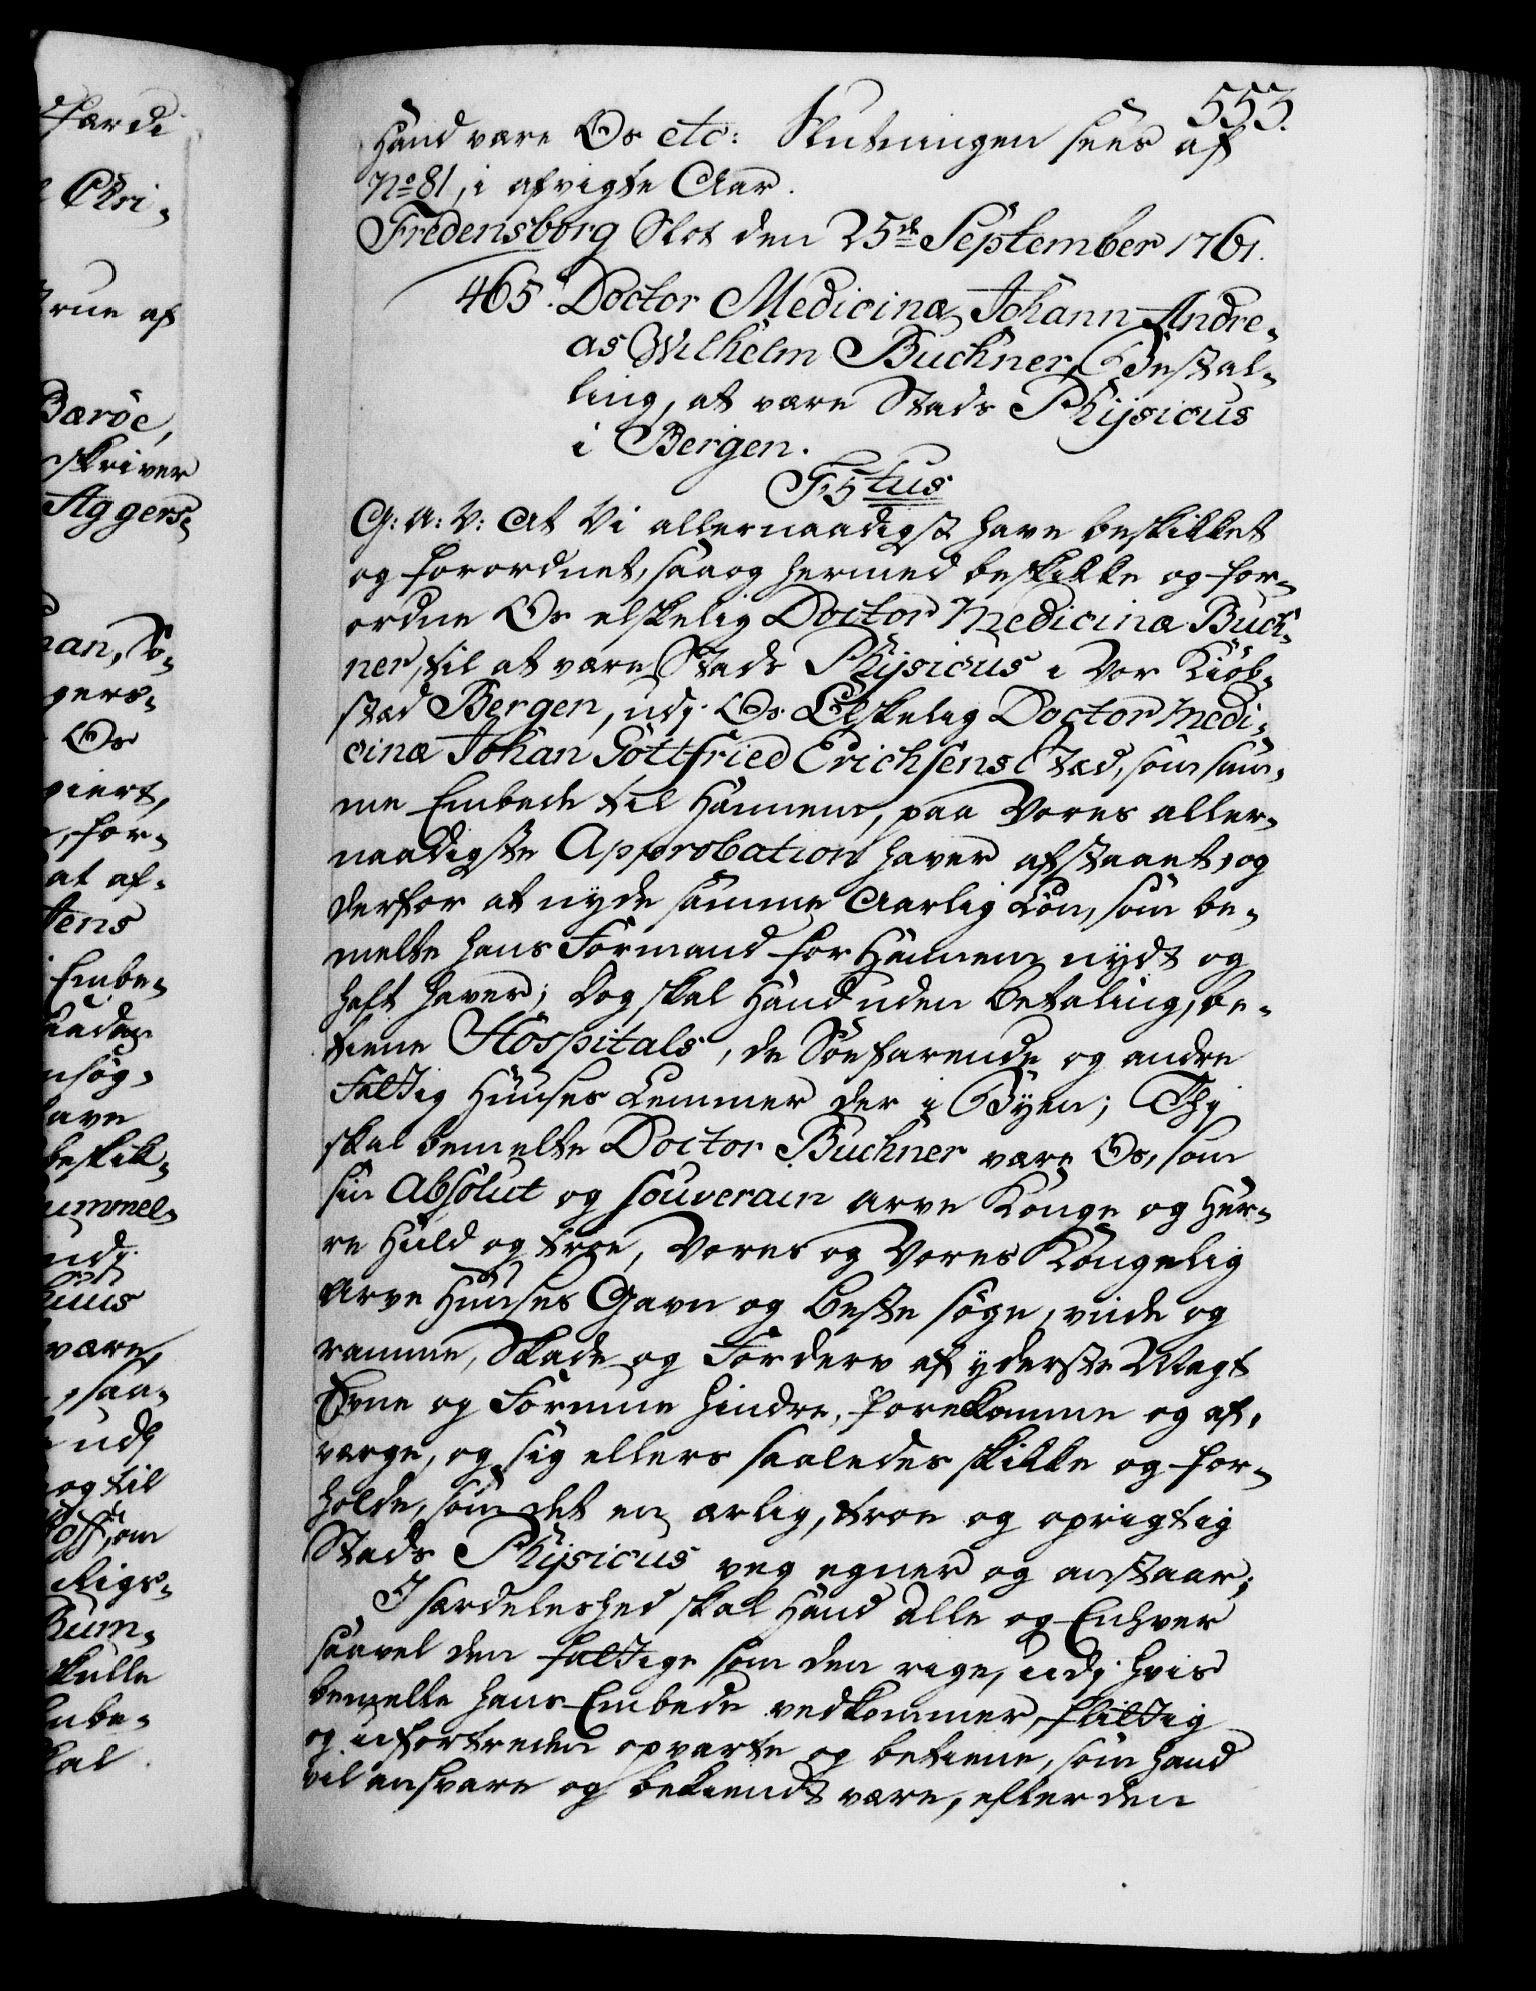 553.
Hand være Os etc: Slutningen sees af
No 81, i afvigte Aar.
Fredensborg Slot den 25de September 1761.
465. Doctor Medicinæ Johann Andre-
as Wilhelm Buchner, Bestal-
ling, at være Stads Physicus
i Bergen.
F: 5tus
G: A: V: At Vi allernaadigst have beskikket
og forordnet, saa og hermed beskikke og for-
ordne Os elskelig Doctor Medicinæ Buch-
ner, til at være Stads Physicus i Vor Kiøb-
stæd Bergen, udj Os Elskelig Doctor Medi-
cinæ Johan Gottfried Erichsens Stæd, som sam-
me Embede til Hannem, paa Vores aller-
naadigste Approbation haver afstaaet, og
derfor at nyde samme Aarlig Løn, som be-
melte hans Formand for Hannem nydt og
haft haver; Dog skal Hand uden Betaling, be-
tiene Hospitals, de Søefarende og andre
Fattig Huuses Lemmer der i Byen; Thj
skal bemelte Doctor Buchner være Os, som
sin Absolut og Souverain Arve Konge og Her-
re Huld og troe, Vores og Vores Kongelig
Arve Huuses Gavn og Beste søge, viide og
ramme, Skade og Forderv af yderste Magt
Evne og Formue hindre, forekomme og af-
værge, og sig ellers saaledes skikke og for-
holde, som det en ærlig, troe og oprigtig
Stads Physicus veg egner og anstaar;
I særdeleshed skal Hand Alle og Enhver
saavel den fattige som den rige, udj hvis
bemelte hans Embede vedkommer, flittig
og ufortreden opvarte og betiene, som hand
vil ansvare og bekiendt være, efter den
færdi
Chri-
true af
Barøe,
skriver
Aggers-
gers-
Os
for-
at af-
tens
Embe-
nsøg-
have
beskik-
ummel-
udj
huus
være,
saa-
udj
og til
som
Rigs-
Bum-
skulle
Embe-
skal